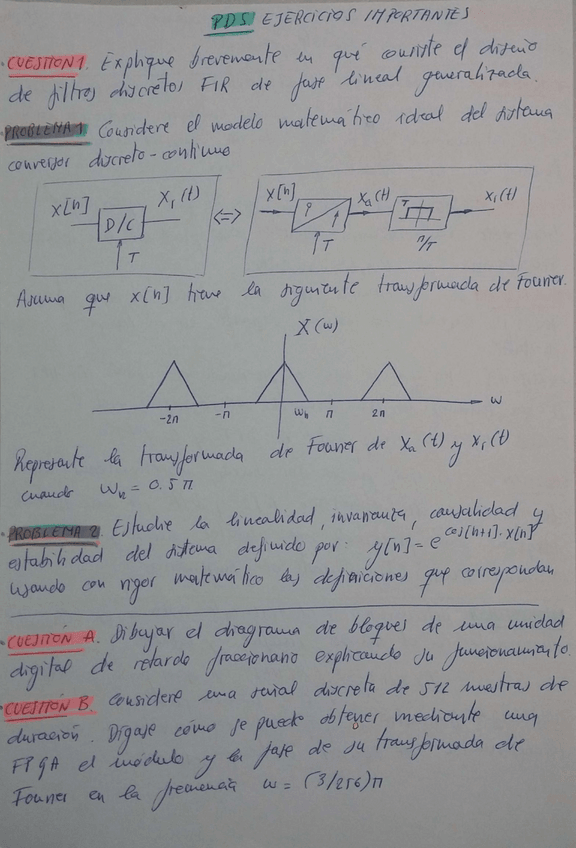 PDS EJERCICIOS IMPORTANTES
· CUESTIÓN 1. Explique brevemente en qué consiste el diseño
de filtros discretos FIR de fase lineal generalizada.
· PROBLEMA 1 Considere el modelo matemático ideal del sistema
conversor discreto-continuo
x[n] D/C x₁(t) T <=> x[n] P T xₐ(t) T π/T x₁(t)
Asuma que x[n] tiene la siguiente transformada de Fourier.
X(ω)
-2π -π ωₙ π 2π ω
Represente la transformada de Fourier de xₐ(t) y x₁(t)
cuando ωₙ = 0.5π
· PROBLEMA 2 Estudie la linealidad, invarianza, causalidad y
estabilidad del sistema definido por: y[n] = e^cos[n+1]·x[n]
usando con rigor matemático las definiciones que correspondan
· CUESTIÓN A. Dibujar el diagrama de bloques de una unidad
digital de retardo fraccionario explicando su funcionamiento.
· CUESTIÓN B. Considere una señal discreta de 512 muestras de
duración. Dígase cómo se puede obtener mediante una
FPGA el módulo y la fase de su transformada de
Fourier en la frecuencia ω = (3/256)π